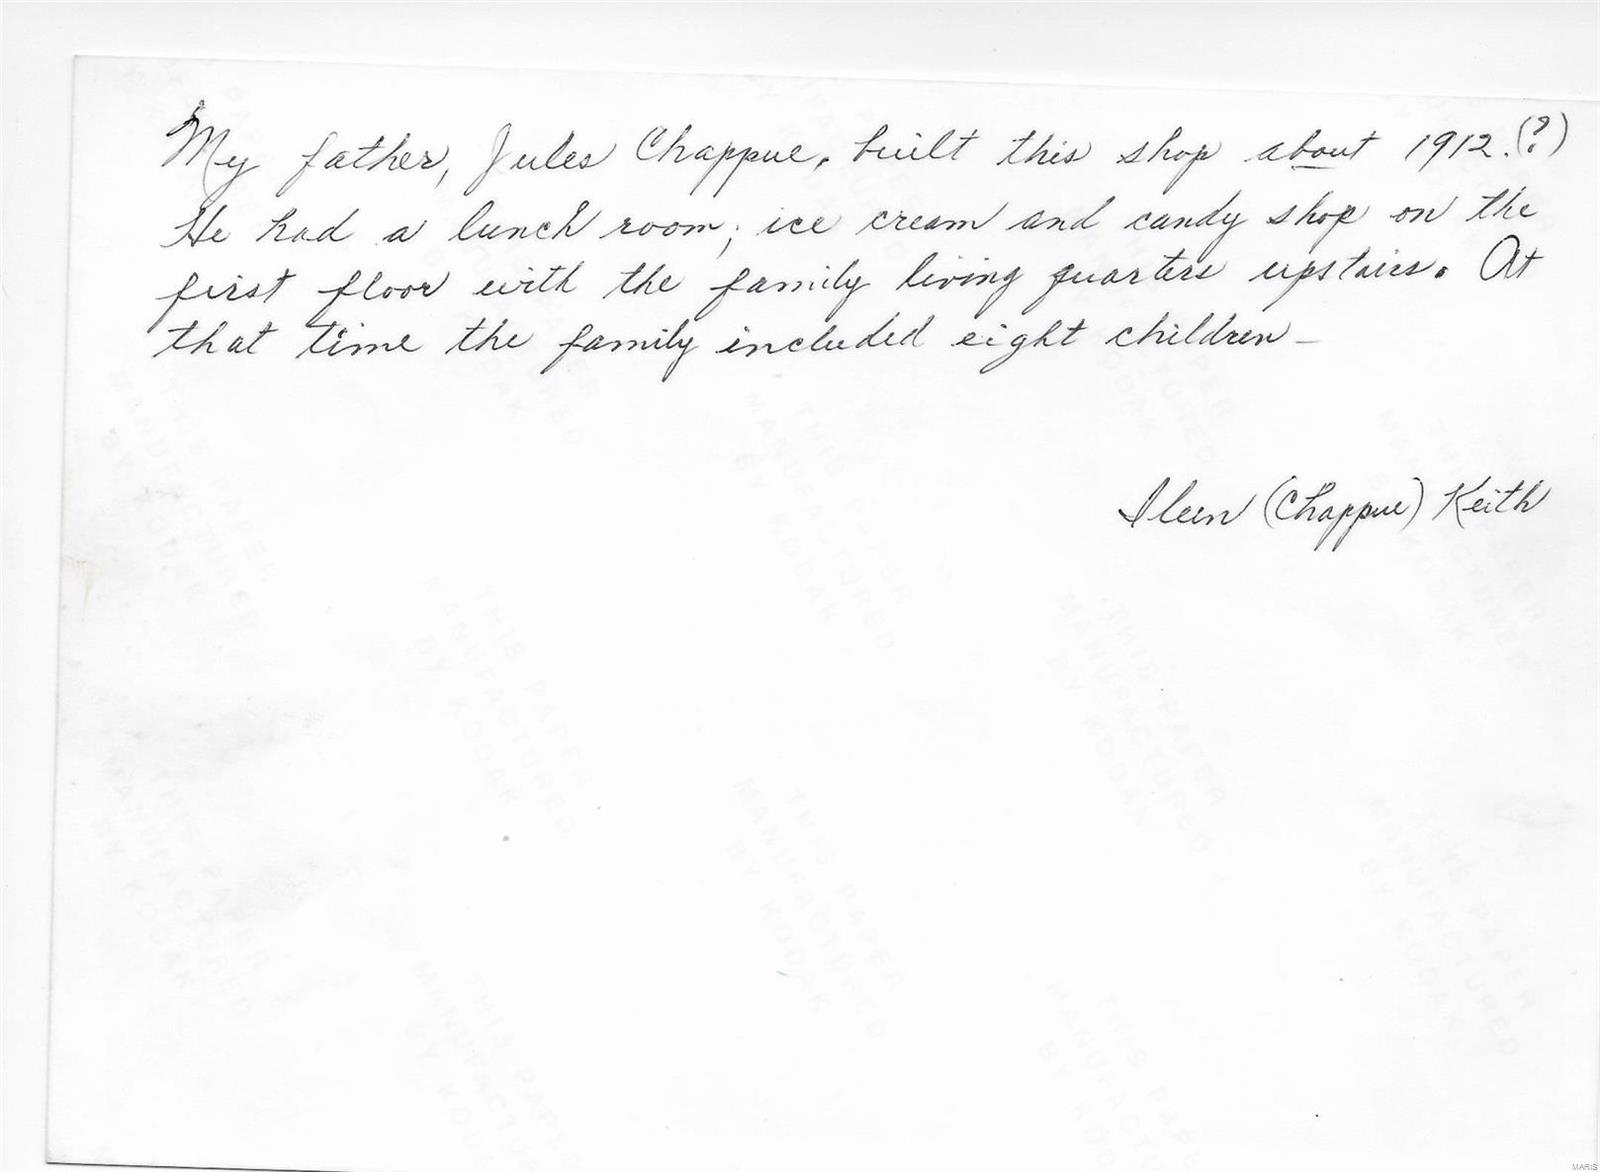 My father, Jules Chappue, built this shop about 1912.(?)
He had a lunch room, ice cream and candy shop on the
first floor with the family living quarters upstairs. At
that time the family included eight children –
Ileen (Chappue) Keith
THIS PAPER
MANUFACTURED
BY KODAK
MARIS